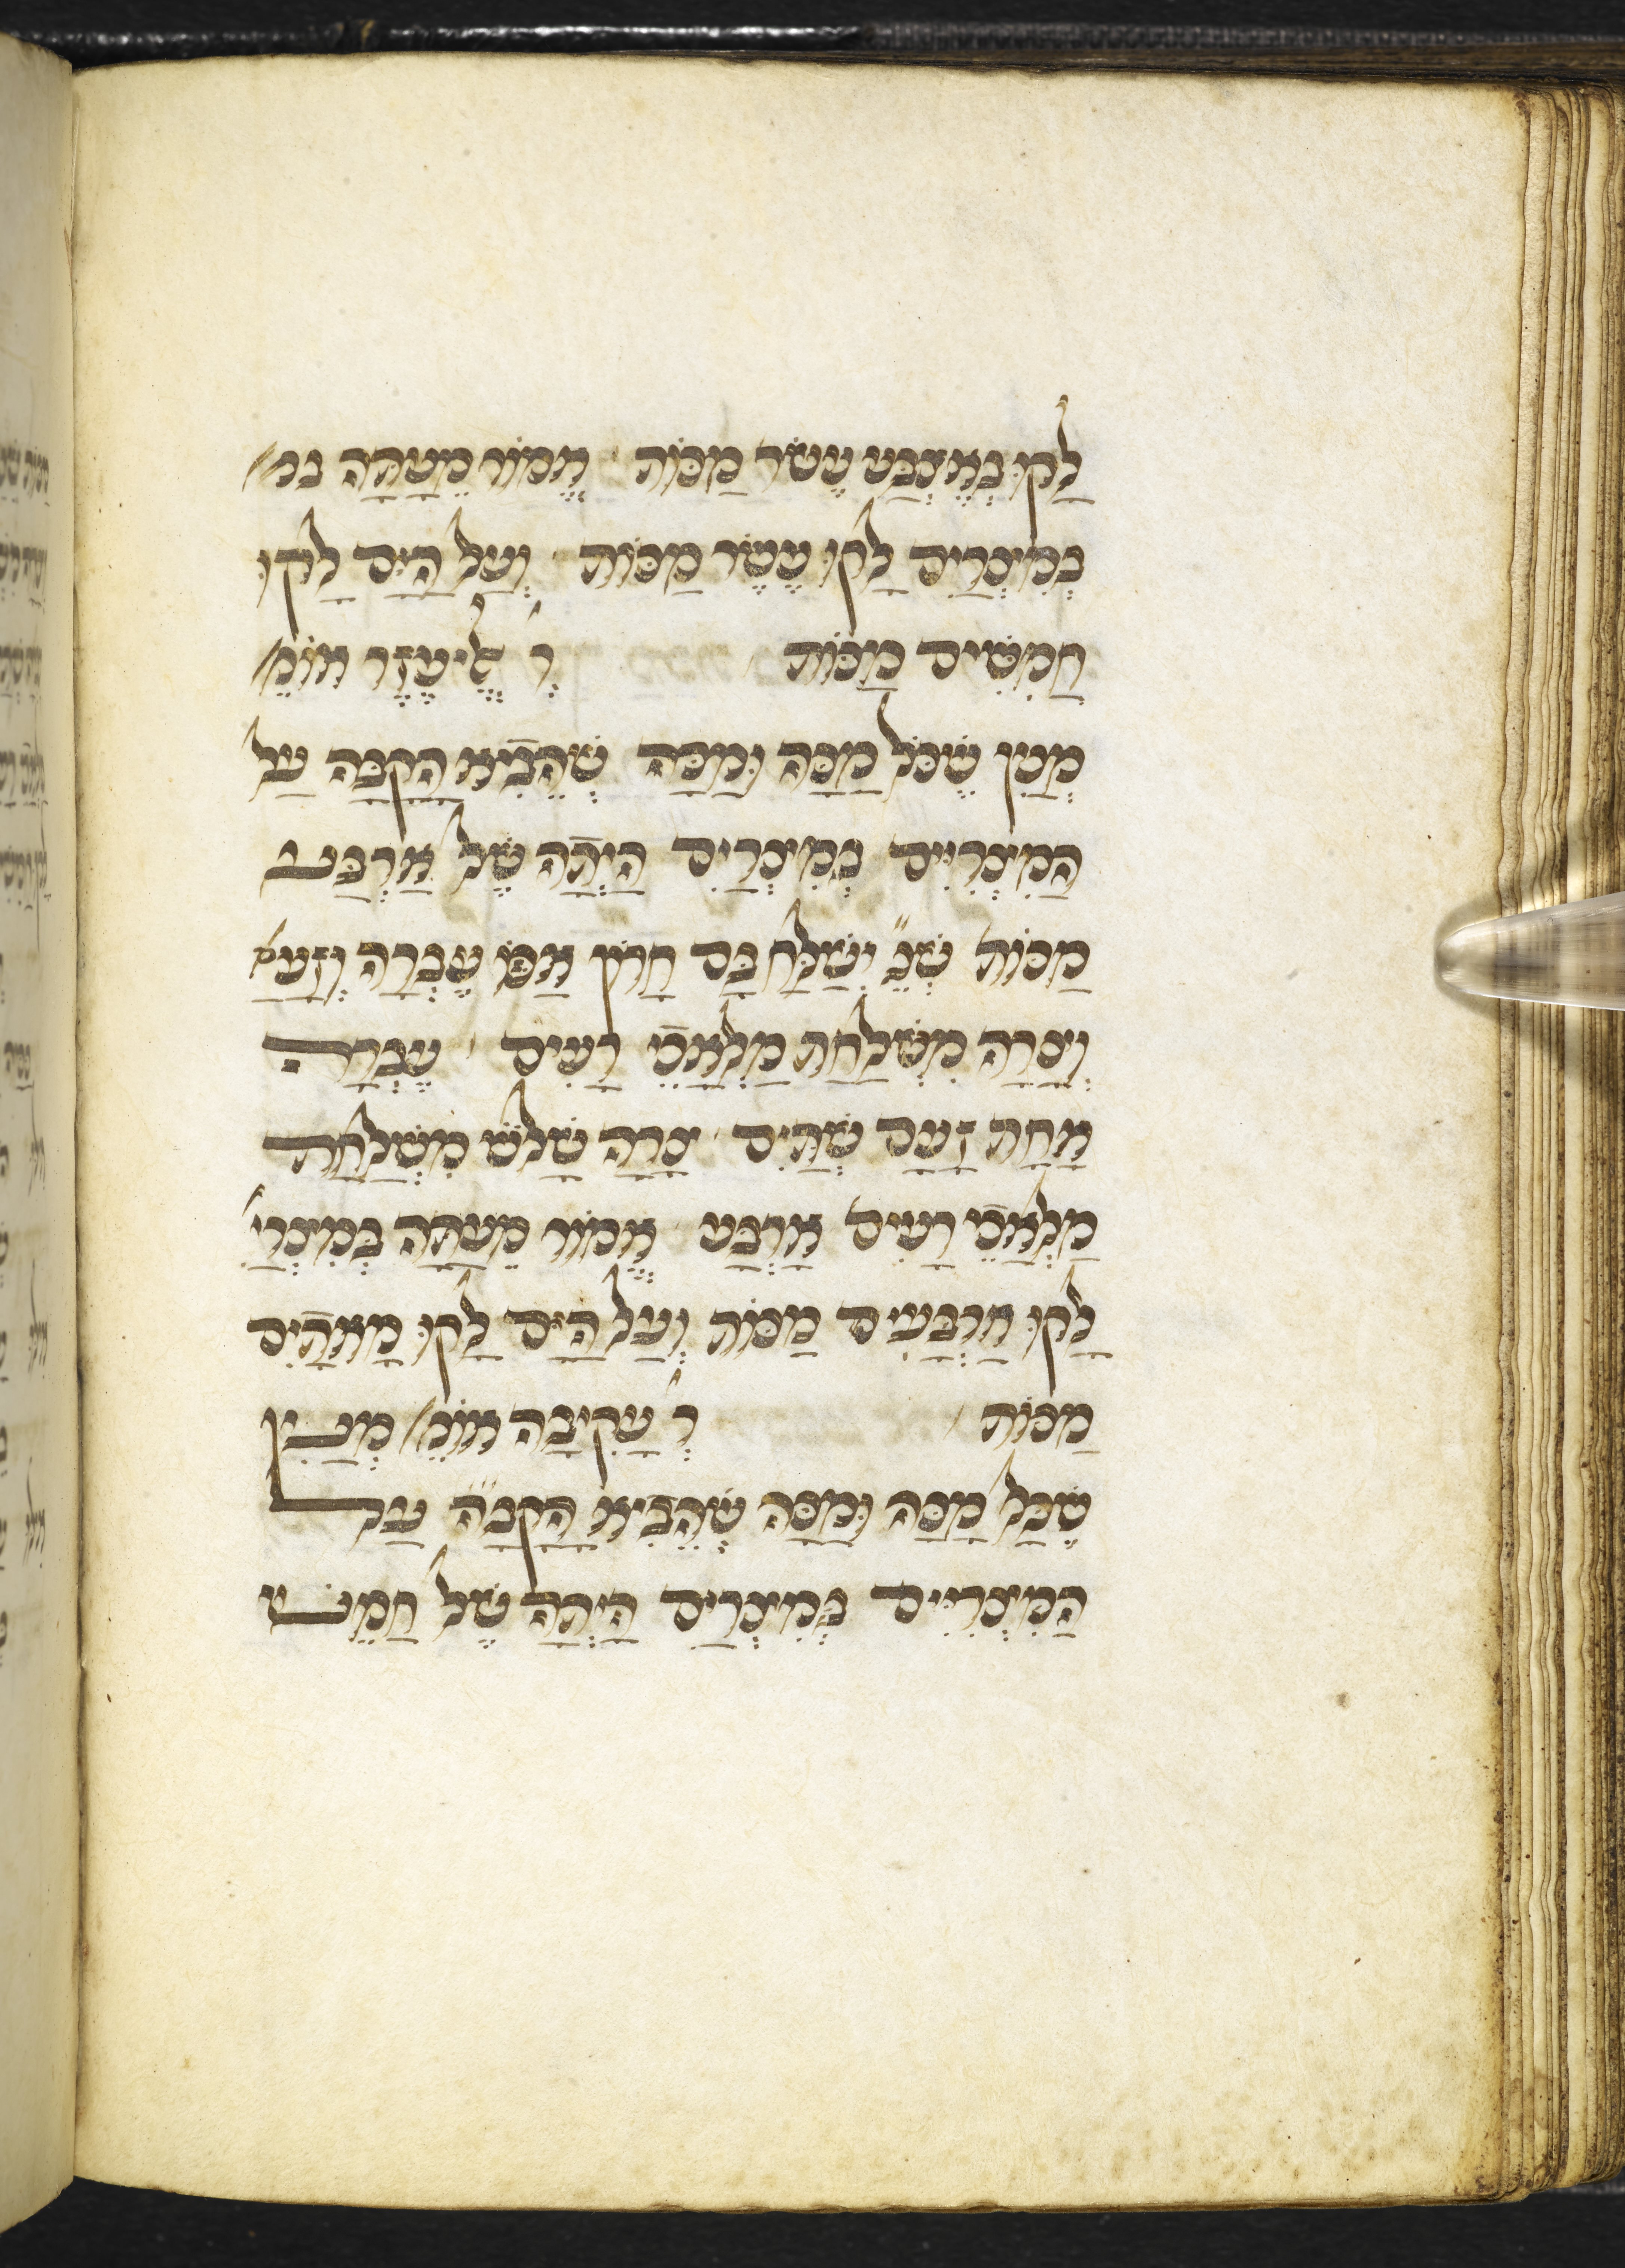 לָקוּ בְאֶצְבַּע עֶשֶׂר מַכּוֹת אֱמוֹר מֵעַתָּה במ׳
בְּמִצְרַיִם לָקוּ עֶשֶׂר מַכּוֹת וְעַל הַיָּם לָקוּ
חֲמִשִּׁים מַכּוֹת רְ׳ אֱלִיעֶזֶר אוֹמֵ׳
מְנַיִן שֶׁכָּל מַכָּה וּמַכָּה שֶׁהֵבִיא הַקָבָּה עַל
הַמִּצְרִיִּים בְּמִצְרַיִם הָיְתָה שֶׁל אַרְבַּע
מַכּוֹת שְׁנֶ״ יְשַׁלַּח בָּם חֲרוֹן אַפּוֹ עֶבְרָה וְזַעַם
וְצָרָה מִשְׁלַחַת מַלְאֲכֵי רָעִים עֶבְרָה
אַחַת זַעַם שְׁתַּיִם צָרָה שָׁלֹשׁ מִשְׁלַחַת
מַלְאֲכֵי רָעִים אַרְבַּע אֱמוֹר מֵעַתָּה בְּמִצְרַיִ׳
לָקוּ אַרְבָּעִים מַכּוֹת וְעַל הַיָּם לָקוּ מָאתָיִם
מַכּוֹת רְ׳ עֲקִיבָה אוֹמֵ׳ מְנַיִן
שֶׁכָּל מַכָּה וּמַכָּה שֶׁהֵבִיא הַקָבָּ״ה עַל
הַמִּצְרִיִּים בְּמִצְרַיִם הָיְתָה שֶׁל חָמֵשׁ